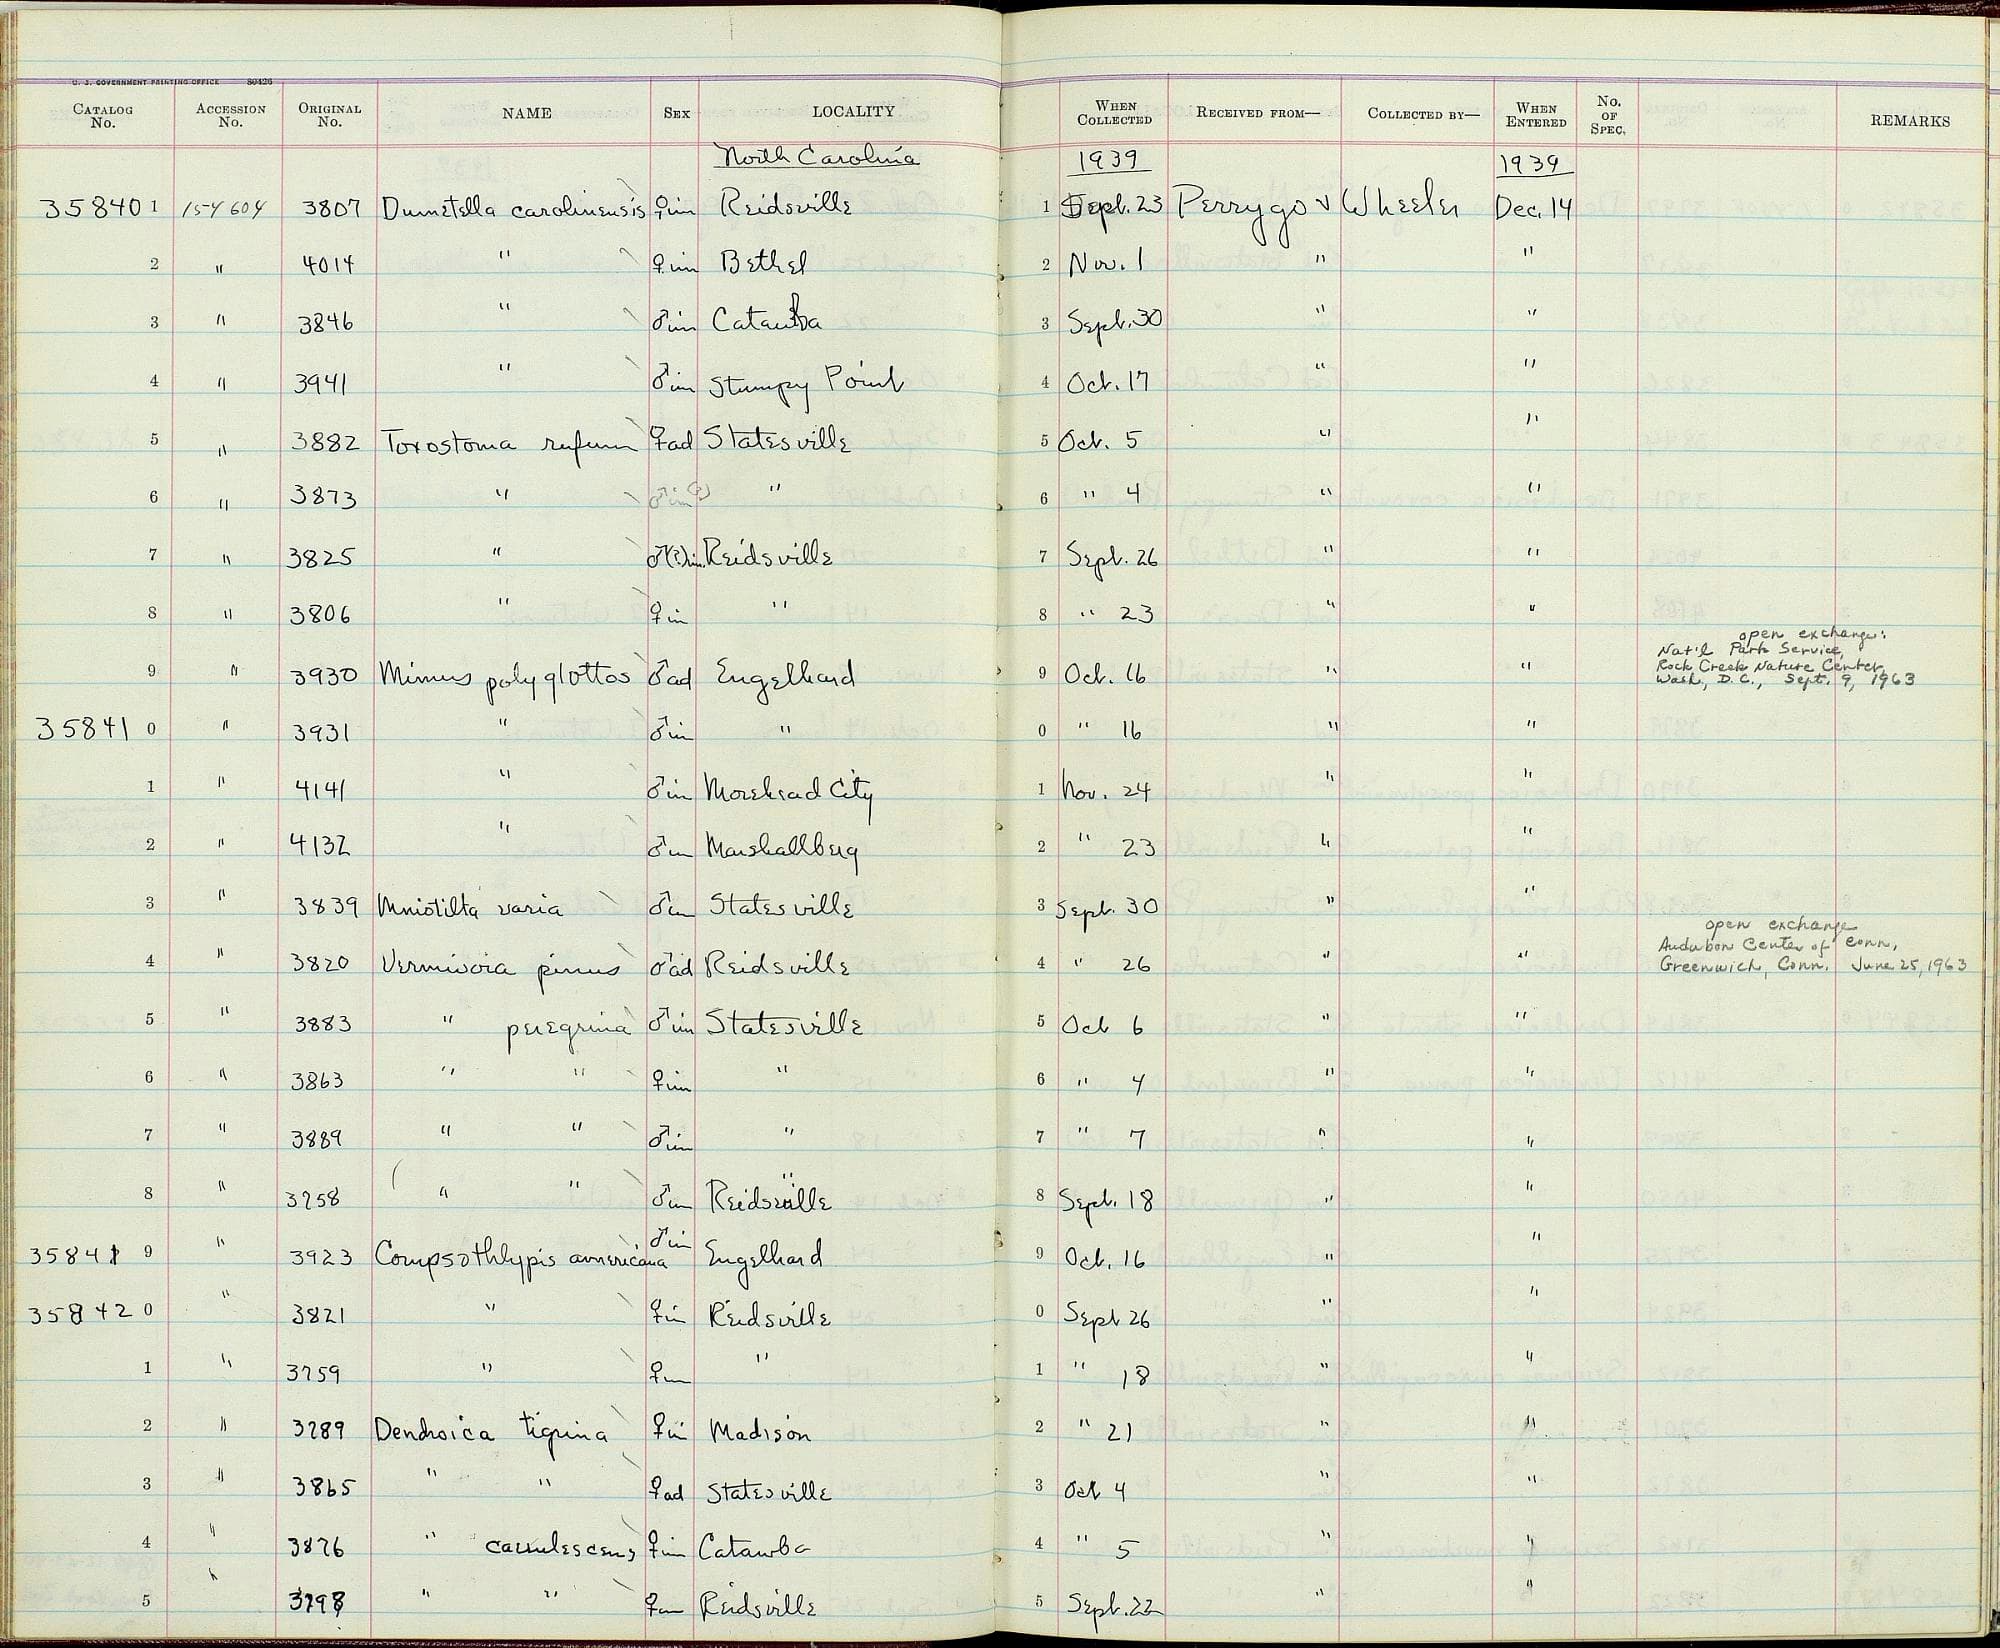 U. S. GOVERNMENT PRINTING OFFICE 80426
CATALOG No. ACCESSION No. ORIGINAL No. NAME SEX LOCALITY WHEN COLLECTED RECEIVED FROM— COLLECTED BY— WHEN ENTERED No. OF SPEC. REMARKS
North Carolina 1939 1939
35840 1 154604 3807 Dumetella carolinensis ♀im Reidsville 1 Sept. 23 Perrygo v Wheeler Dec. 14
2 " 4014 " ♀im Bethel 2 Nov. 1 " "
3 " 3846 " ♂im Catawba 3 Sept. 30 " "
4 " 3941 " ♂im Stumpy Point 4 Oct. 17 " "
5 " 3882 Toxostoma rufum ♀ad Statesville 5 Oct. 5 " "
6 " 3873 " ♂im(?) " 6 " 4 " "
7 " 3825 " ♂(?)im. Reidsville 7 Sept. 26 " "
8 " 3806 " ♀im " 8 " 23 " "
open exchange:
Nat'l Park Service,
Rock Creek Nature Center,
Wash, D.C., Sept. 9, 1963
9 " 3930 Mimus polyglottos ♂ad Engelhard 9 Oct. 16 " "
35841 0 " 3931 " ♂im " 0 " 16 " "
1 " 4141 " ♂im Morehead City 1 Nov. 24 " "
2 " 4132 " ♂im Marshallberg 2 " 23 " "
3 " 3839 Mniotilta varia ♂im Statesville 3 Sept. 30 " "
open exchange
Audubon Center of Conn.,
Greenwich, Conn. June 25, 1963
4 " 3820 Vermivora pinus ♂ad Reidsville 4 " 26 " "
5 " 3883 " peregrina ♂im Statesville 5 Oct 6 " "
6 " 3863 " " ♀im " 6 " 4 " "
7 " 3889 " " ♂im " 7 " 7 " "
8 " 3758 " " ♂im Reidsville 8 Sept. 18 " "
35841 9 " 3923 Compsothlypis americana ♂im Engelhard 9 Oct. 16 " "
35842 0 " 3821 " ♀im Reidsville 0 Sept 26 " "
1 " 3759 " ♀im " 1 " 18 " "
2 " 3789 Dendroica tigrina ♀im Madison 2 " 21 " "
3 " 3865 " " ♀ad Statesville 3 Oct 4 " "
4 " 3876 " caerulescens ♀im Catawba 4 " 5 " "
5 " 3798 " " ♀im Reidsville 5 Sept. 22 " "